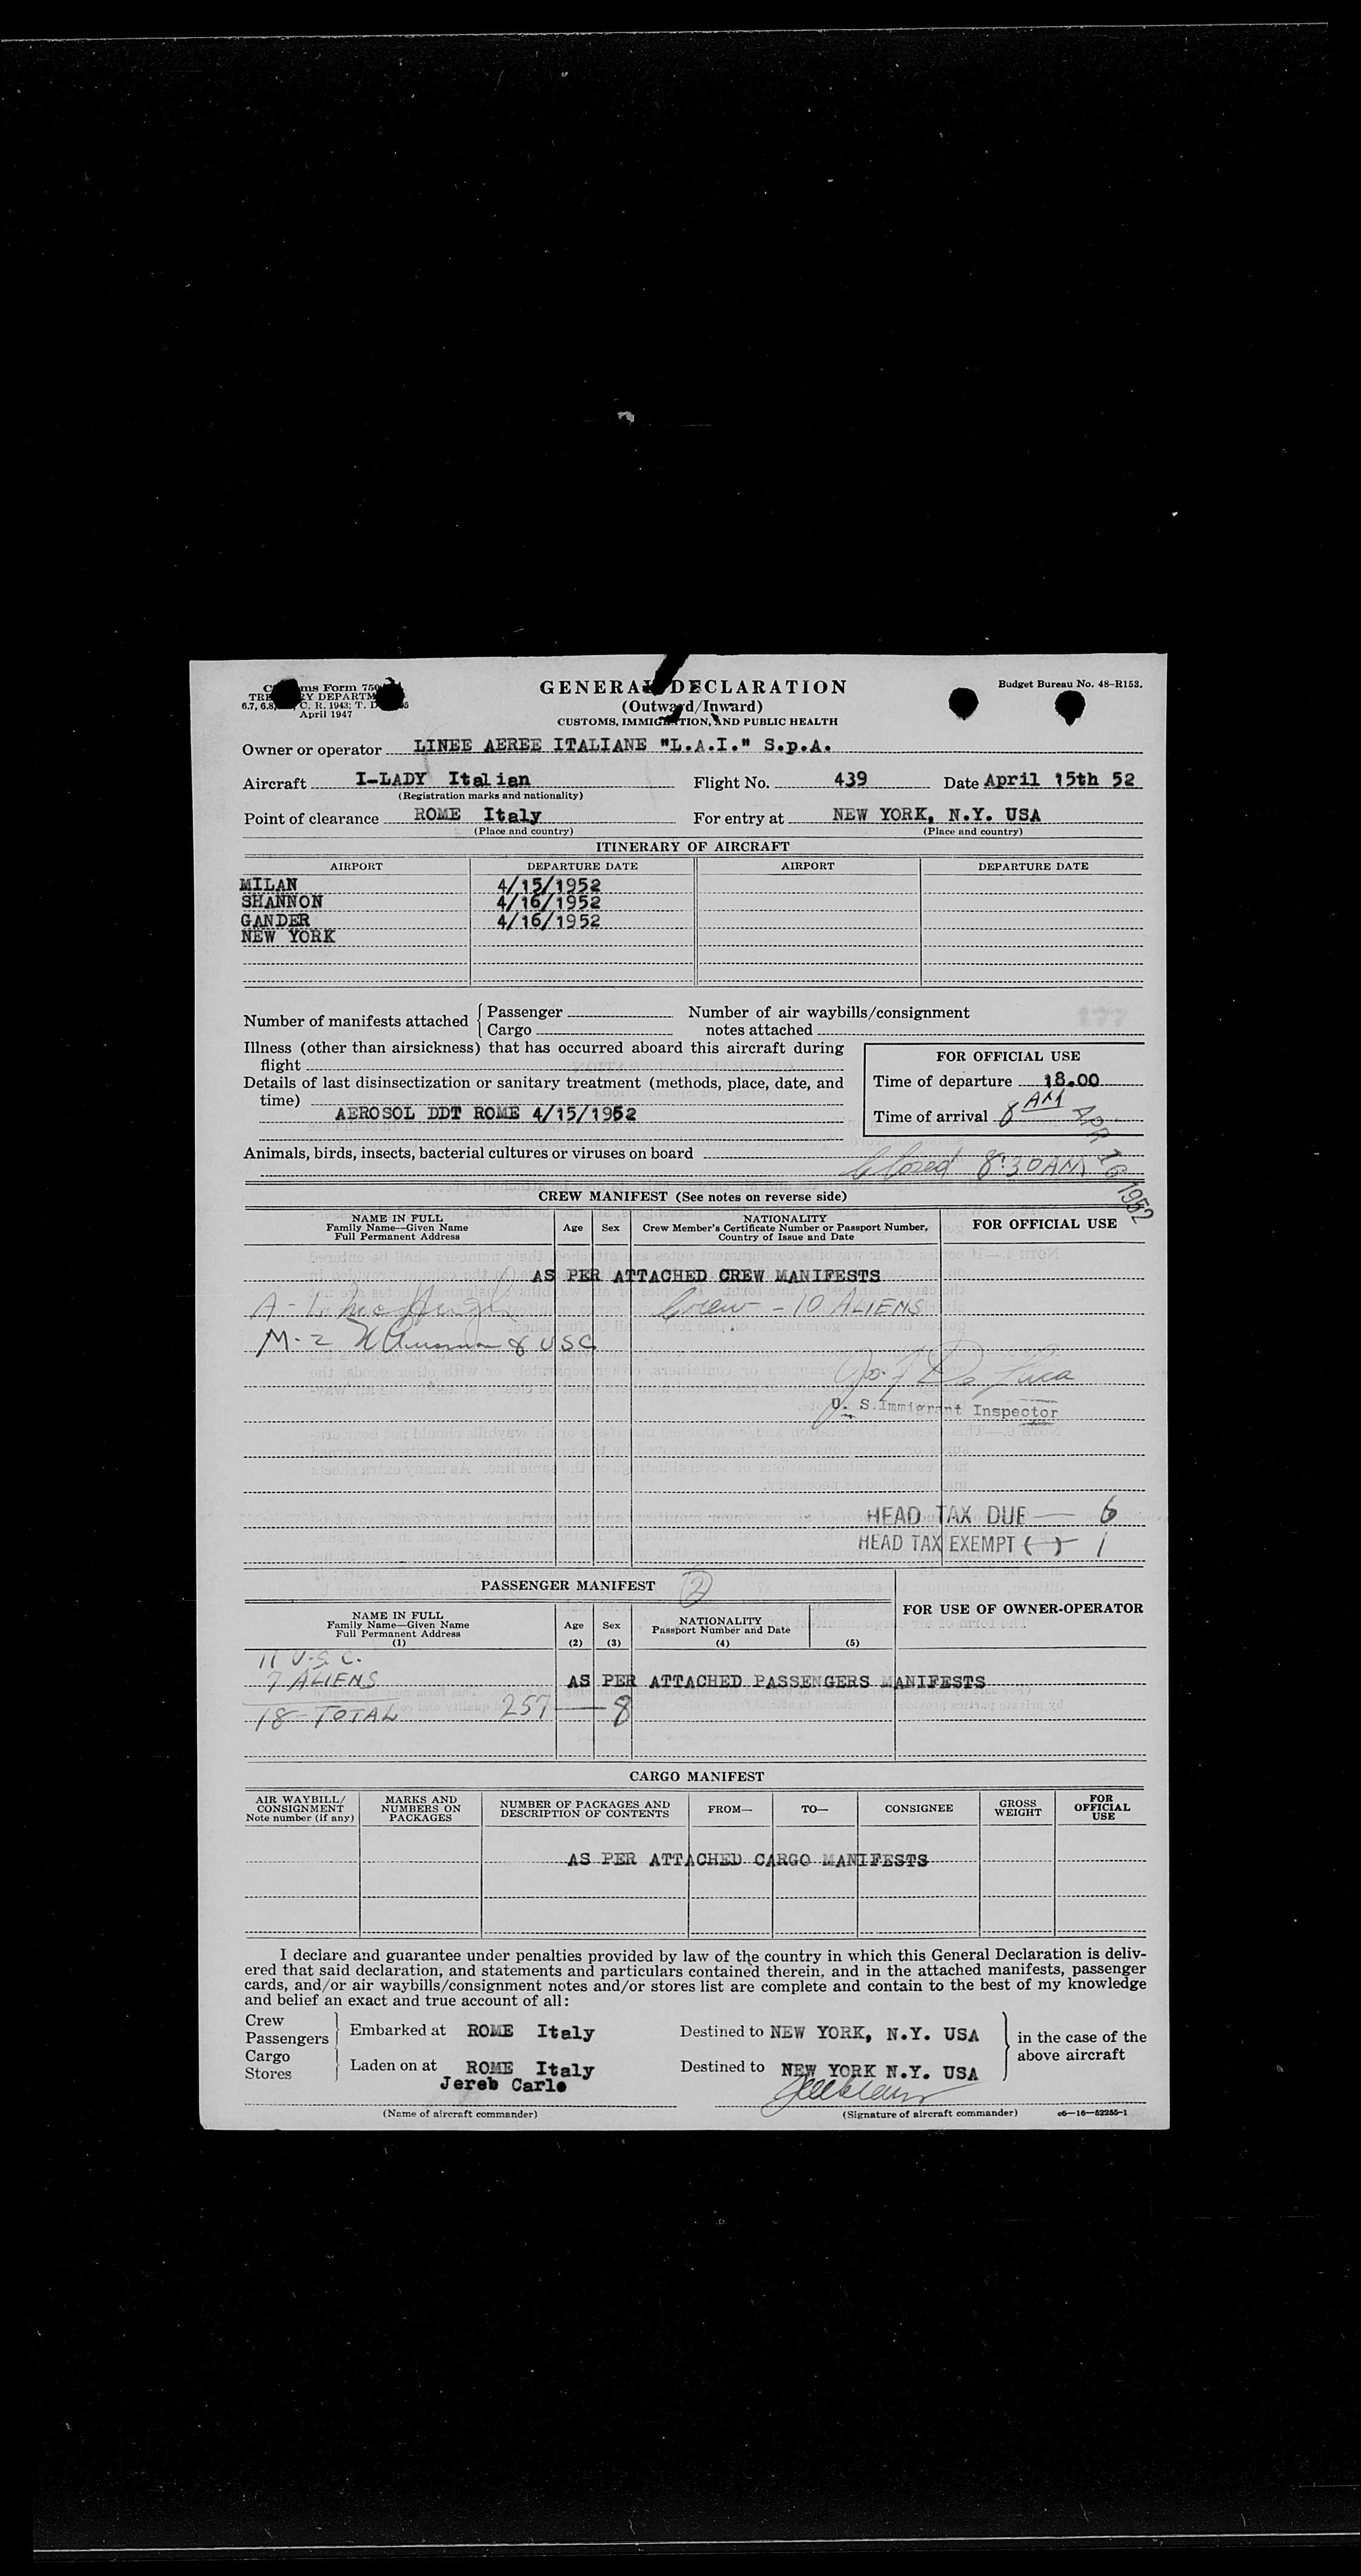 Form 750
DEPARTM
6.7, 6.8, C. R. 1943; T. D.
April 1947
GENERAL DECLARATION
(Outward/Inward)
CUSTOMS, IMMIGRATION, AND PUBLIC HEALTH
Budget Bureau No. 48-R153.
Owner or operator LINEE AEREE ITALIANE "L.A.I." S.p.A.
Aircraft I-LADY Italian Flight No. 439 Date April 15th 52
(Registration marks and nationality)
Point of clearance ROME Italy For entry at NEW YORK, N.Y. USA
(Place and country) (Place and country)
ITINERARY OF AIRCRAFT
AIRPORT DEPARTURE DATE AIRPORT DEPARTURE DATE
MILAN 4/15/1952
SHANNON 4/16/1952
GANDER 4/16/1952
NEW YORK
Number of manifests attached { Passenger
Cargo
Number of air waybills/consignment
notes attached
177
Illness (other than airsickness) that has occurred aboard this aircraft during
flight
Details of last disinsectization or sanitary treatment (methods, place, date, and
time)
AEROSOL DDT ROME 4/15/1952
FOR OFFICIAL USE
Time of departure 18.00
Time of arrival 8 AM
APR 16 1952
Animals, birds, insects, bacterial cultures or viruses on board
Closed 8:30 AM
CREW MANIFEST (See notes on reverse side)
NAME IN FULL
Family Name—Given Name
Full Permanent Address
Age Sex
NATIONALITY
Crew Member's Certificate Number or Passport Number,
Country of Issue and Date
FOR OFFICIAL USE
AS PER ATTACHED CREW MANIFESTS
Crew - 10 ALIENS
M-2 USC
Jo. F. De Luca
U. S. Immigrant Inspector
HEAD TAX DUE — 6
HEAD TAX EXEMPT ( ) 1
PASSENGER MANIFEST 2
NAME IN FULL
Family Name—Given Name
Full Permanent Address
(1)
Age
(2)
Sex
(3)
NATIONALITY
Passport Number and Date
(4)
(5)
FOR USE OF OWNER-OPERATOR
11 U.S.C.
7 ALIENS
AS PER ATTACHED PASSENGERS MANIFESTS
18 - TOTAL 257 — 8
CARGO MANIFEST
AIR WAYBILL/
CONSIGNMENT
Note number (if any)
MARKS AND
NUMBERS ON
PACKAGES
NUMBER OF PACKAGES AND
DESCRIPTION OF CONTENTS
FROM—
TO—
CONSIGNEE
GROSS
WEIGHT
FOR
OFFICIAL
USE
AS PER ATTACHED CARGO MANIFESTS
I declare and guarantee under penalties provided by law of the country in which this General Declaration is deliv-
ered that said declaration, and statements and particulars contained therein, and in the attached manifests, passenger
cards, and/or air waybills/consignment notes and/or stores list are complete and contain to the best of my knowledge
and belief an exact and true account of all:
Crew
Passengers
Embarked at ROME Italy Destined to NEW YORK, N.Y. USA
Cargo
Stores
Laden on at ROME Italy Destined to NEW YORK N.Y. USA
in the case of the
above aircraft
Jereb Carlo
(Name of aircraft commander) (Signature of aircraft commander) c6—16—52255-1